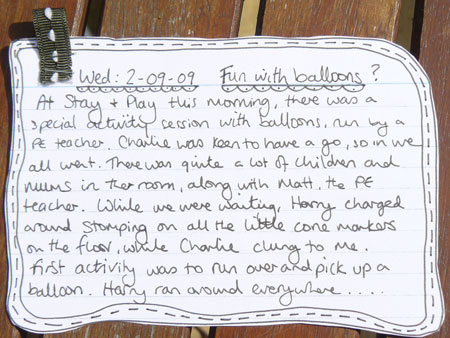 Wed: 2-09-09 Fun with balloons?
At Stay & Play this morning, there was a
special activity session with balloons, run by a
PE teacher. Charlie was keen to have a go, so in we
all went. There was quite a lot of children and
mums in the room, along with Matt, the PE
teacher. While we were waiting, Harry charged
around stomping on all the little cone markers
on the floor, while Charlie clung to me.
First activity was to run over and pick up a
balloon. Harry ran around everywhere.....